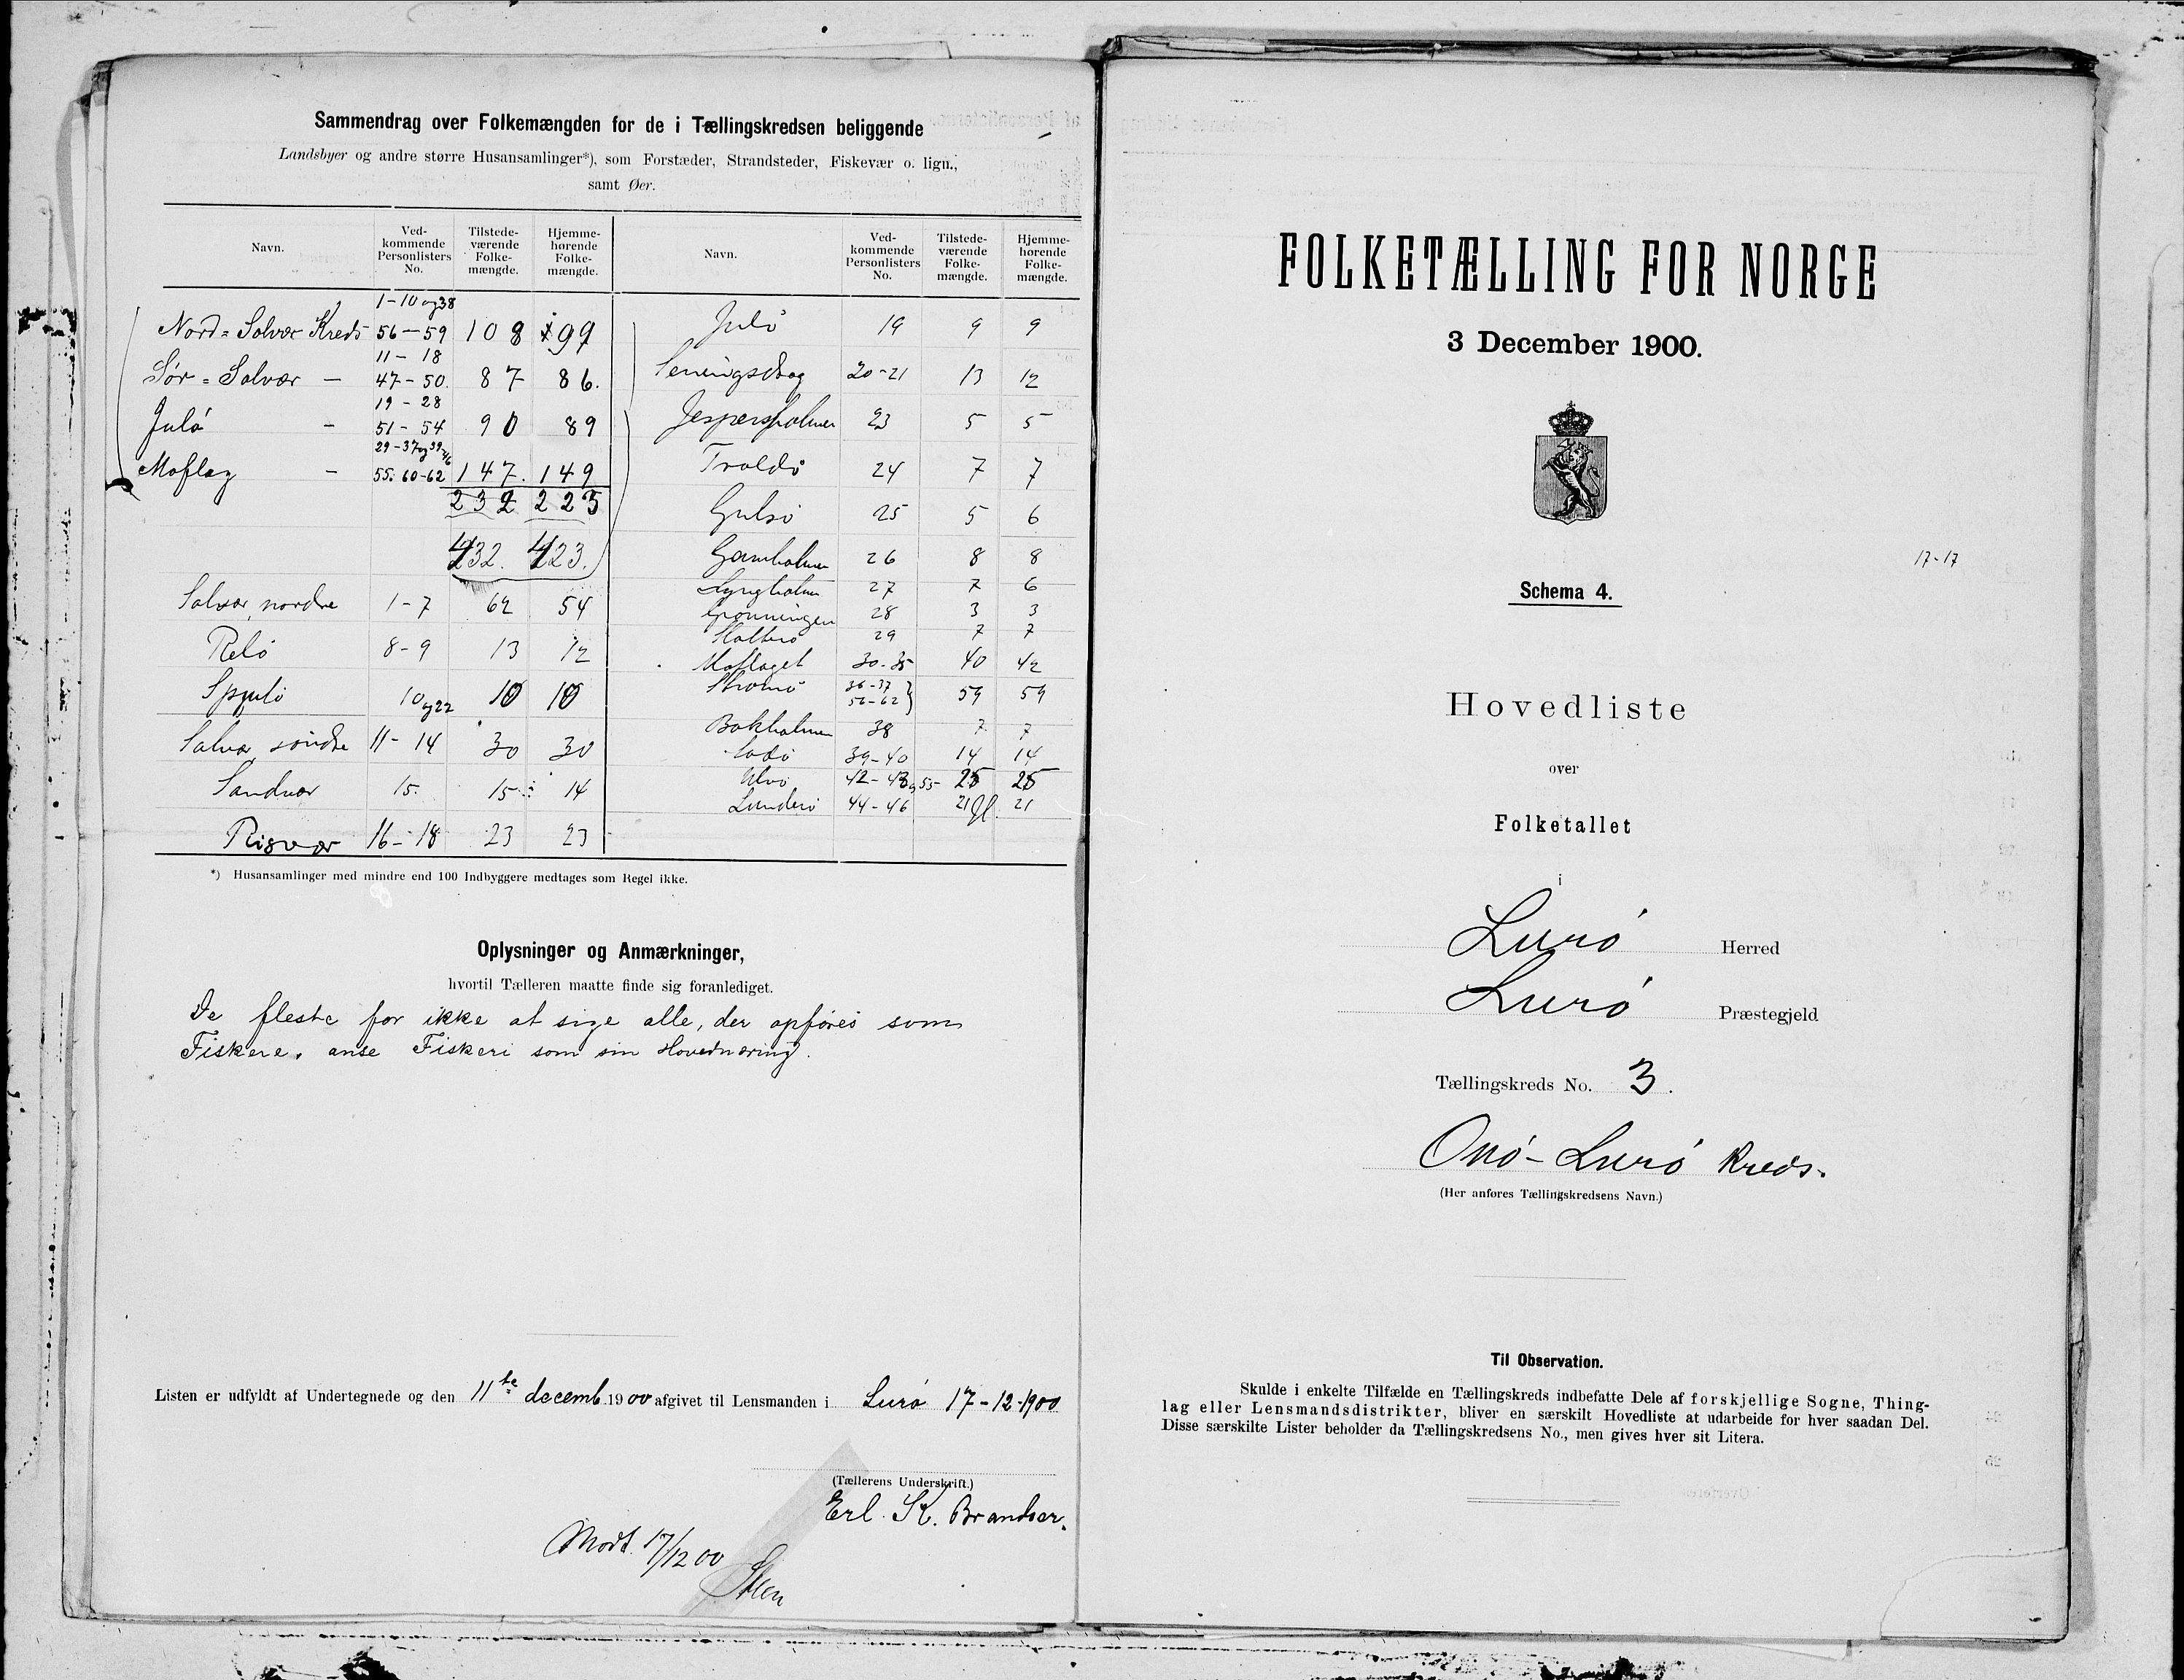 Sammendrag over Folkemængden for de i Tællingskredsen beliggende
Landsbyer og andre større Husansamlinger*), som Forstæder, Strandsteder, Fiskevær o. lign.,
samt Øer.
Navn. Ved-kommende Personlisters No. Tilstede-værende Folke-mængde. Hjemme-hørende Folke-mængde.
1-10 og 38
Nord-Solvær Kreds 56-59 108 99
11-18
Sør-Solvær - 47-50. 87 86.
19-28
Julø - 51-54 90 89
29-37 og 39-46
Moflag - 55. 60-62 147. 149
232 225
432. 423.
Solvær nordre 1-7 62 54
Relø 8-9 13 12
10 og 22 10 10
Solvær söndre 11-14 30 30
Sandvær 15. 15 14
Risvær 16-18 23 23
Navn. Ved-kommende Personlisters No. Tilstede-værende Folke-mængde. Hjemme-hørende Folke-mængde.
Julö 19 9 9
20-21 13 12
Jespersholmen 23 5 5
Troldö 24 7 7
Gulsö 25 5 6
26 8 8
Lyngholmen 27 7 6
Grönningen 28 3 3
29 7 7
Moflaget 30-35 40 42
Stromö 36-37 56-62 } 59 59
Bokholmen 38 7 7
39-40 14 14
Alvö 42-43 og 55- 25 25
Lunderö 44-46 21 21
*) Husansamlinger med mindre end 100 Indbyggere medtages som Regel ikke.
Oplysninger og Anmærkninger,
hvortil Tælleren maatte finde sig foranlediget.
De fleste for ikke at sige alle, der opföres som
Fiskere, anse Fiskeri som sin Hovednæring.
Listen er udfyldt af Undertegnede og den 11te decemb. 1900 afgivet til Lensmanden i Lurö 17-12-1900
(Tællerens Underskrift.)
Erl. K. Brandser.
Modt. 17/12 00
FOLKETÆLLING FOR NORGE
3 December 1900.
17-17
Schema 4.
Hovedliste
over
Folketallet
i
Lurö Herred
Lurö Præstegjeld
Tællingskreds No. 3.
Onö-Lurö Kreds.
(Her anføres Tællingskredsens Navn.)
Til Observation.
Skulde i enkelte Tilfælde en Tællingskreds indbefatte Dele af forskjellige Sogne, Thing-
lag eller Lensmandsdistrikter, bliver en særskilt Hovedliste at udarbeide for hver saadan Del.
Disse særskilte Lister beholder da Tællingskredsens No., men gives hver sit Litera.